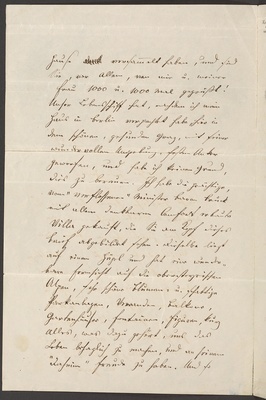 Hause versammelt haben, und sind
Sie, vor allem, von mir u. meiner
Frau 1000 u. 1000 mal gegrüßt!
Unser Lebensschiff hat, nachdem ich mein
Haus in Berlin verkauft habe, hier in
dem schönen, gesunden Graz, mit seiner
wundervollen Umgebung, festen Anker
geworfen, und habe ich keinen Grund,
dies zu bereuen. Ich habe die prächtige,
vom Minister
mit allem denkbaren Comfort erbaute
Villa gekauft, die Sie am Kopf dieses
Briefes abgebildet sehen. Dieselbe liegt
auf einem Hügel und hat eine wunder-
bare Fernsicht auf die obersteyrischen
Alpen, sehr schöne Blumen- u. schattige
Parkanlagen, Veranden, Balkone,
Gartenhäuser, Fontainen, Figuren, kurz
Alles, was dazu gehört, um das
Leben behaglich zu machen, und an seinem
"Daheim" Freude zu haben. Und so